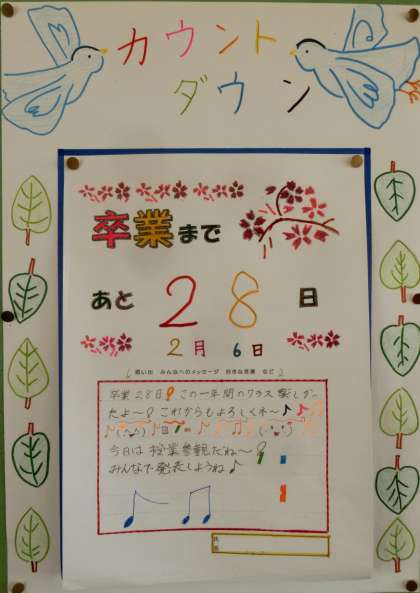 カウント
ダウン
卒業まで
あと 28 日
2月 6日
思い出 みんなへのメッセージ 好きな言葉 など
卒業28日！この一年間のクラス楽しかっ
たよ〜！これからもよろしくね〜♪♪♪
今日は授業参観だね〜！
みんなで発表しようね♪